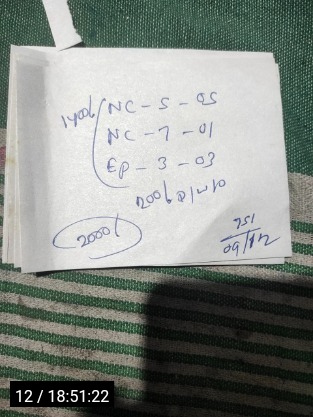 1400/ NC - 5 - 05
NC - 7 - 01
EP - 3 - 03
200/
2000/
751
12 / 18:51:22